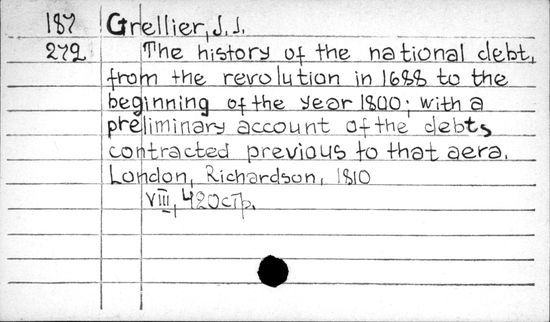 187 Grellier, J. J.
272 The history of the national debt,
from the revolution in 1688 to the
beginning of the year 1800; with a
preliminary account of the debts
contracted previous to that aera.
London, Richardson, 1810
VIII, 420стр.